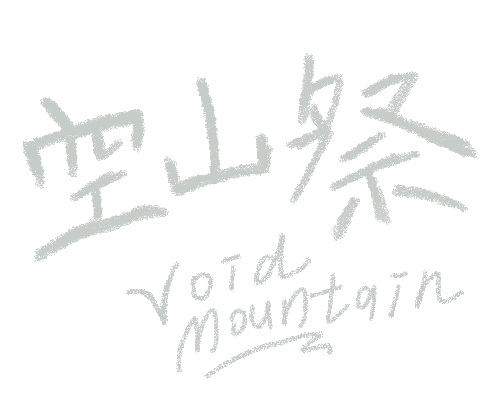 空山祭
void
mountain